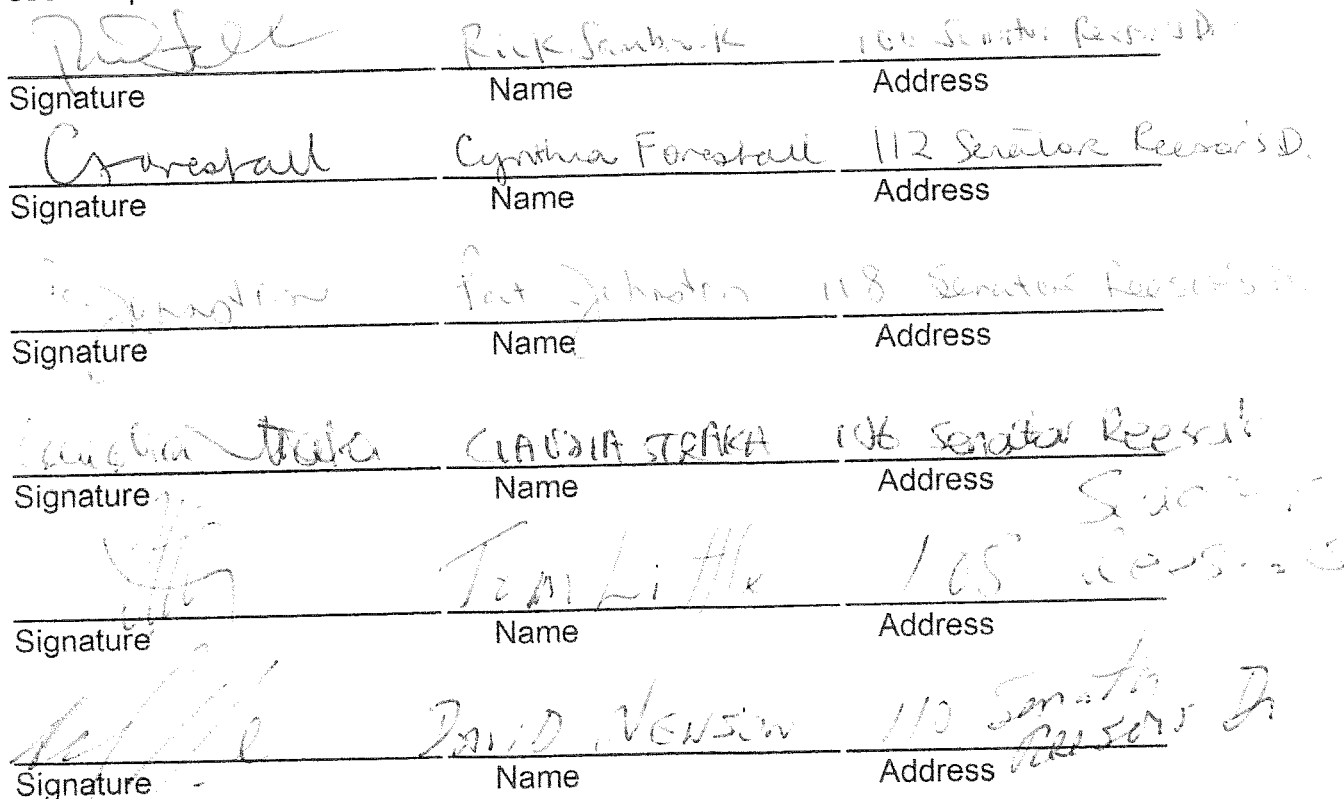 Rick Senator Reesor's Dr.
Signature Name Address
CForestall Cynthia Forestall 112 Senator Reesor's D.
Signature Name Address
Johnston Pat Johnston 118 Senator Reesor's
Signature Name Address
Claudia Straka CLAUDIA STRAKA 106 Senator Reesor's
Signature Name Address
Tom Little 105
Signature Name Address
DAVID VENSON 110 Senator
Reesors Dr
Signature Name Address